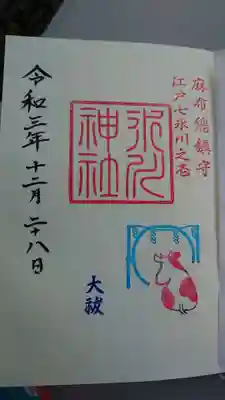 麻布総鎮守
江戸七氷川之壱
氷川神社
大祓
令和三年十二月二十八日